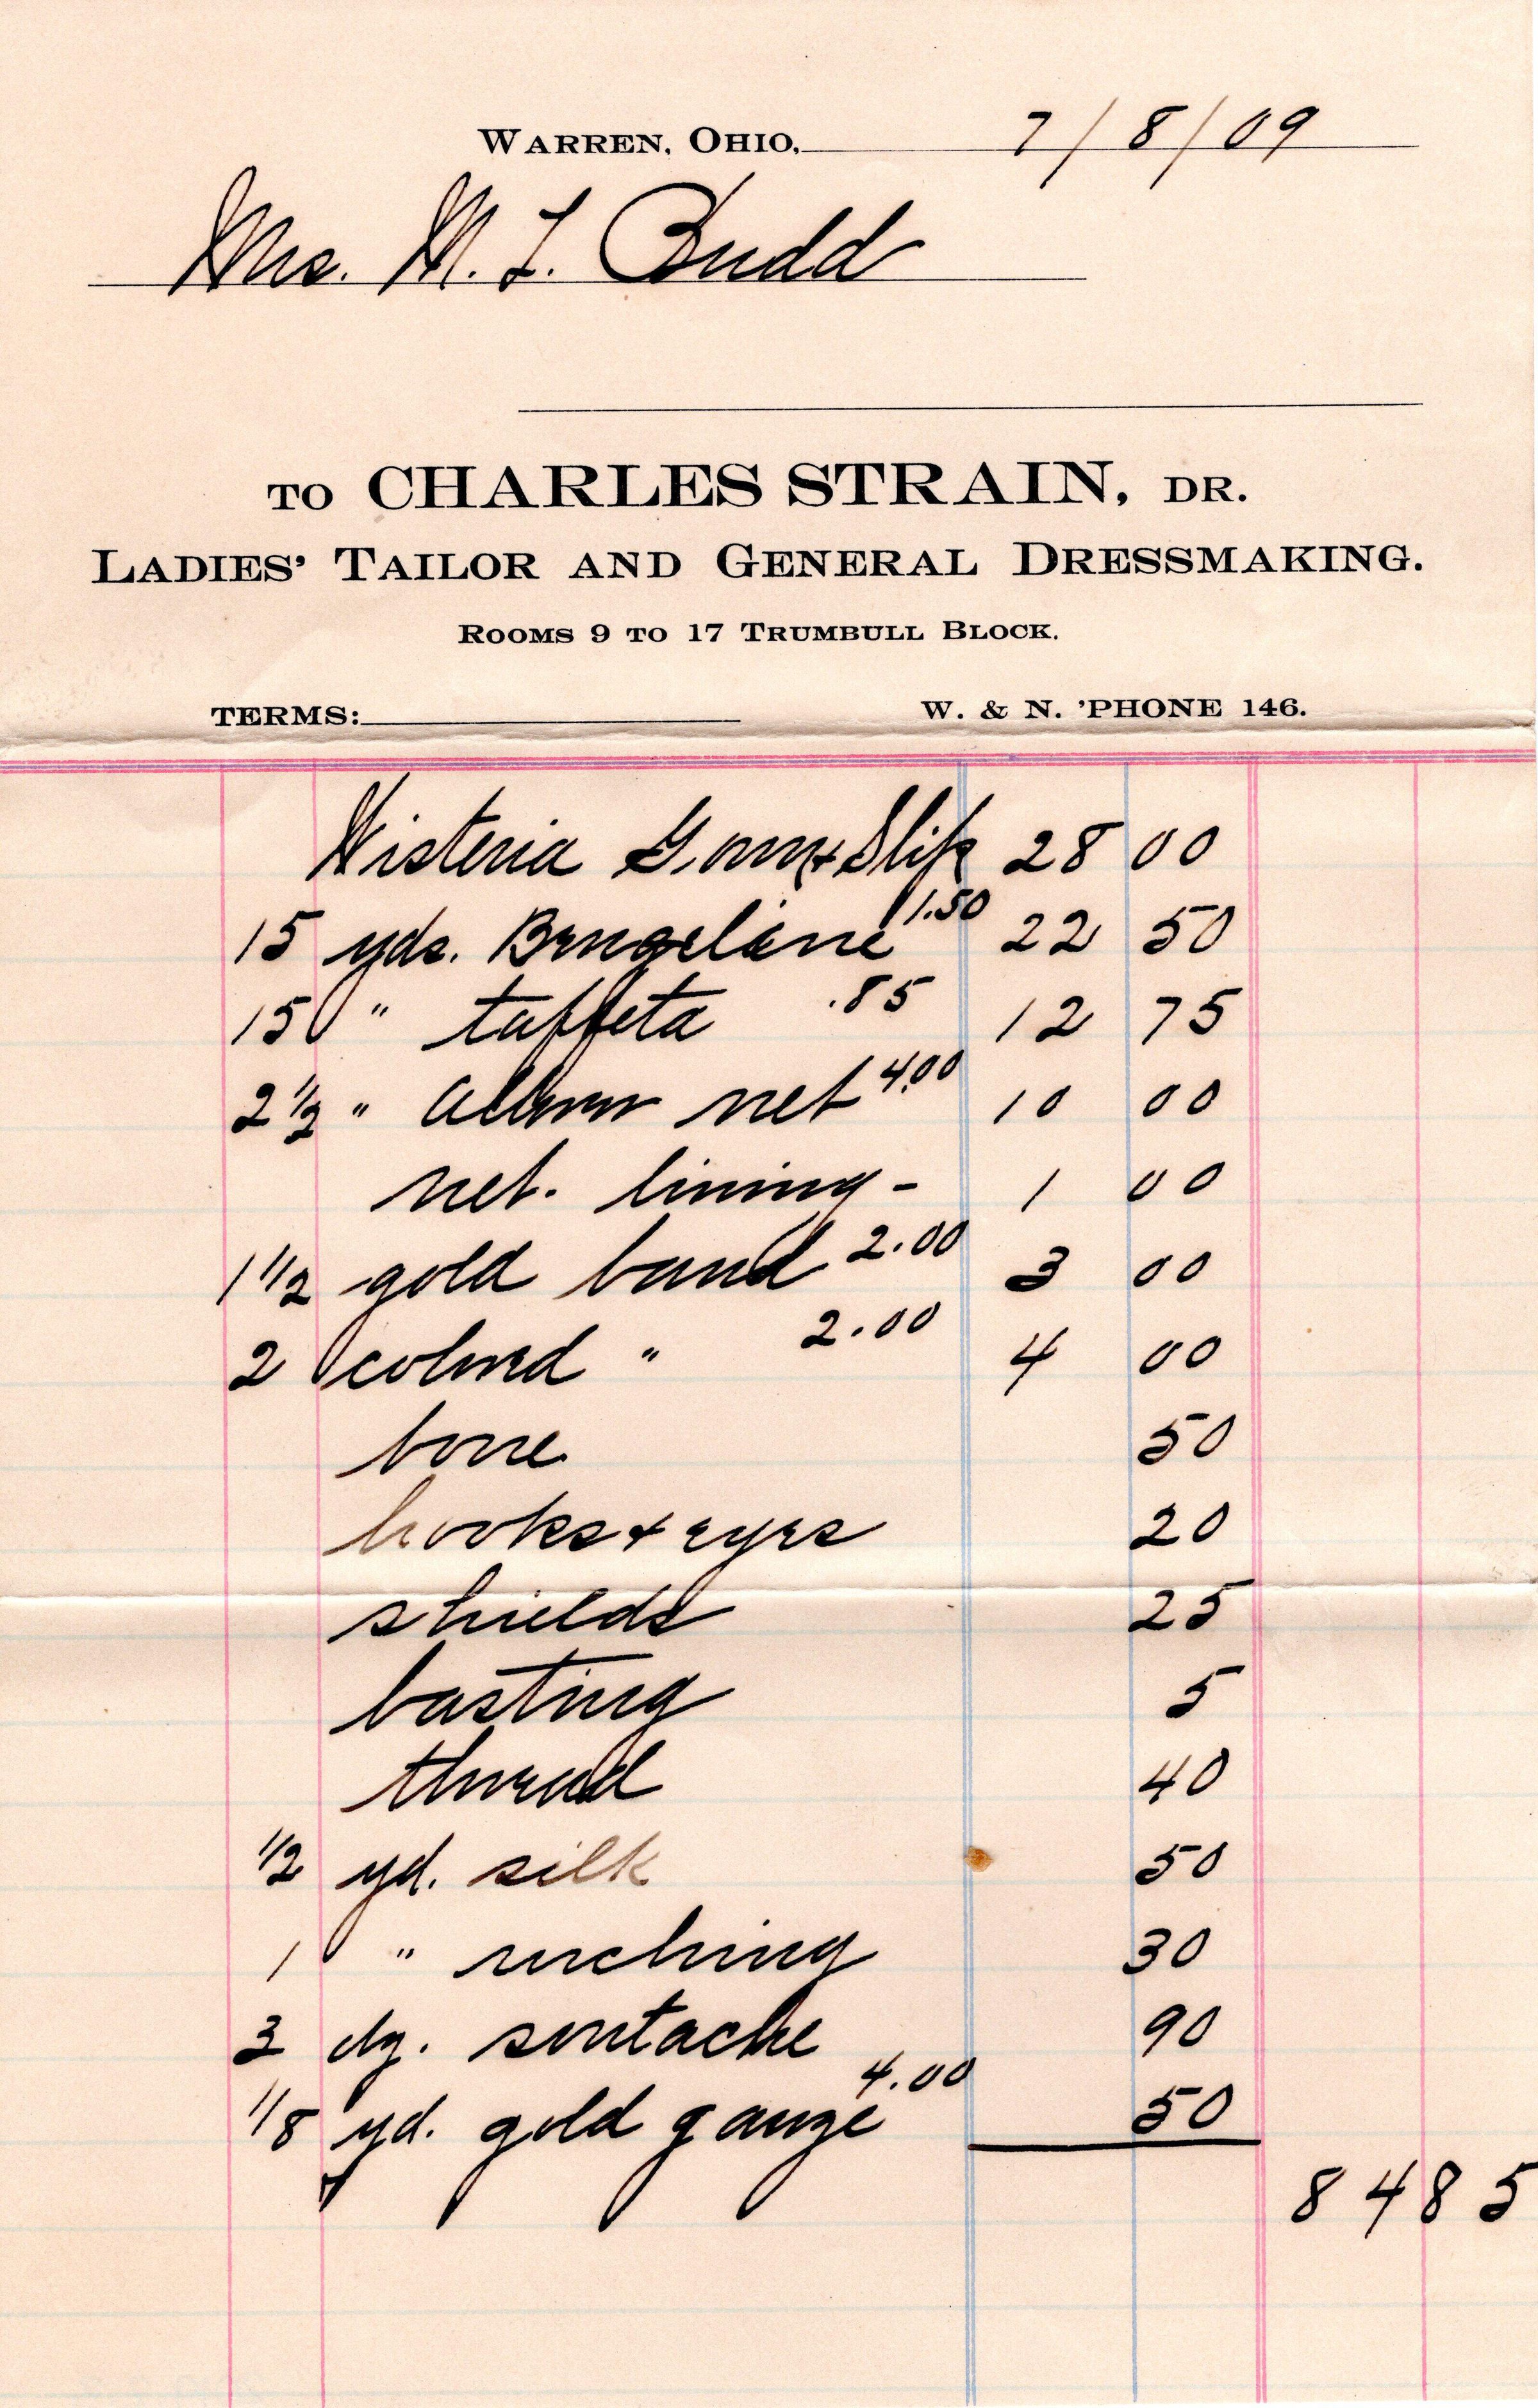 WARREN, OHIO, 7/8/09
Mrs. M. L. Budd
TO CHARLES STRAIN, DR.
LADIES' TAILOR AND GENERAL DRESSMAKING.
ROOMS 9 TO 17 TRUMBULL BLOCK.
TERMS: W. & N. 'PHONE 146.
Wisteria Gown & Slip 28 00
15 yds. Bengaline 1.50 22 50
15 " taffeta .85 12 75
2 1/2 " net 4.00 10 00
net. lining - 1 00
1 1/2 gold band 2.00 3 00
2 colored " 2.00 4 00
bone 50
hooks & eyes 20
shields 25
basting 5
thread 40
1/2 yd. silk 50
1 " ruching 30
3 dz. soutache 90
1/8 yd. gold gauze 4.00 50
84 85